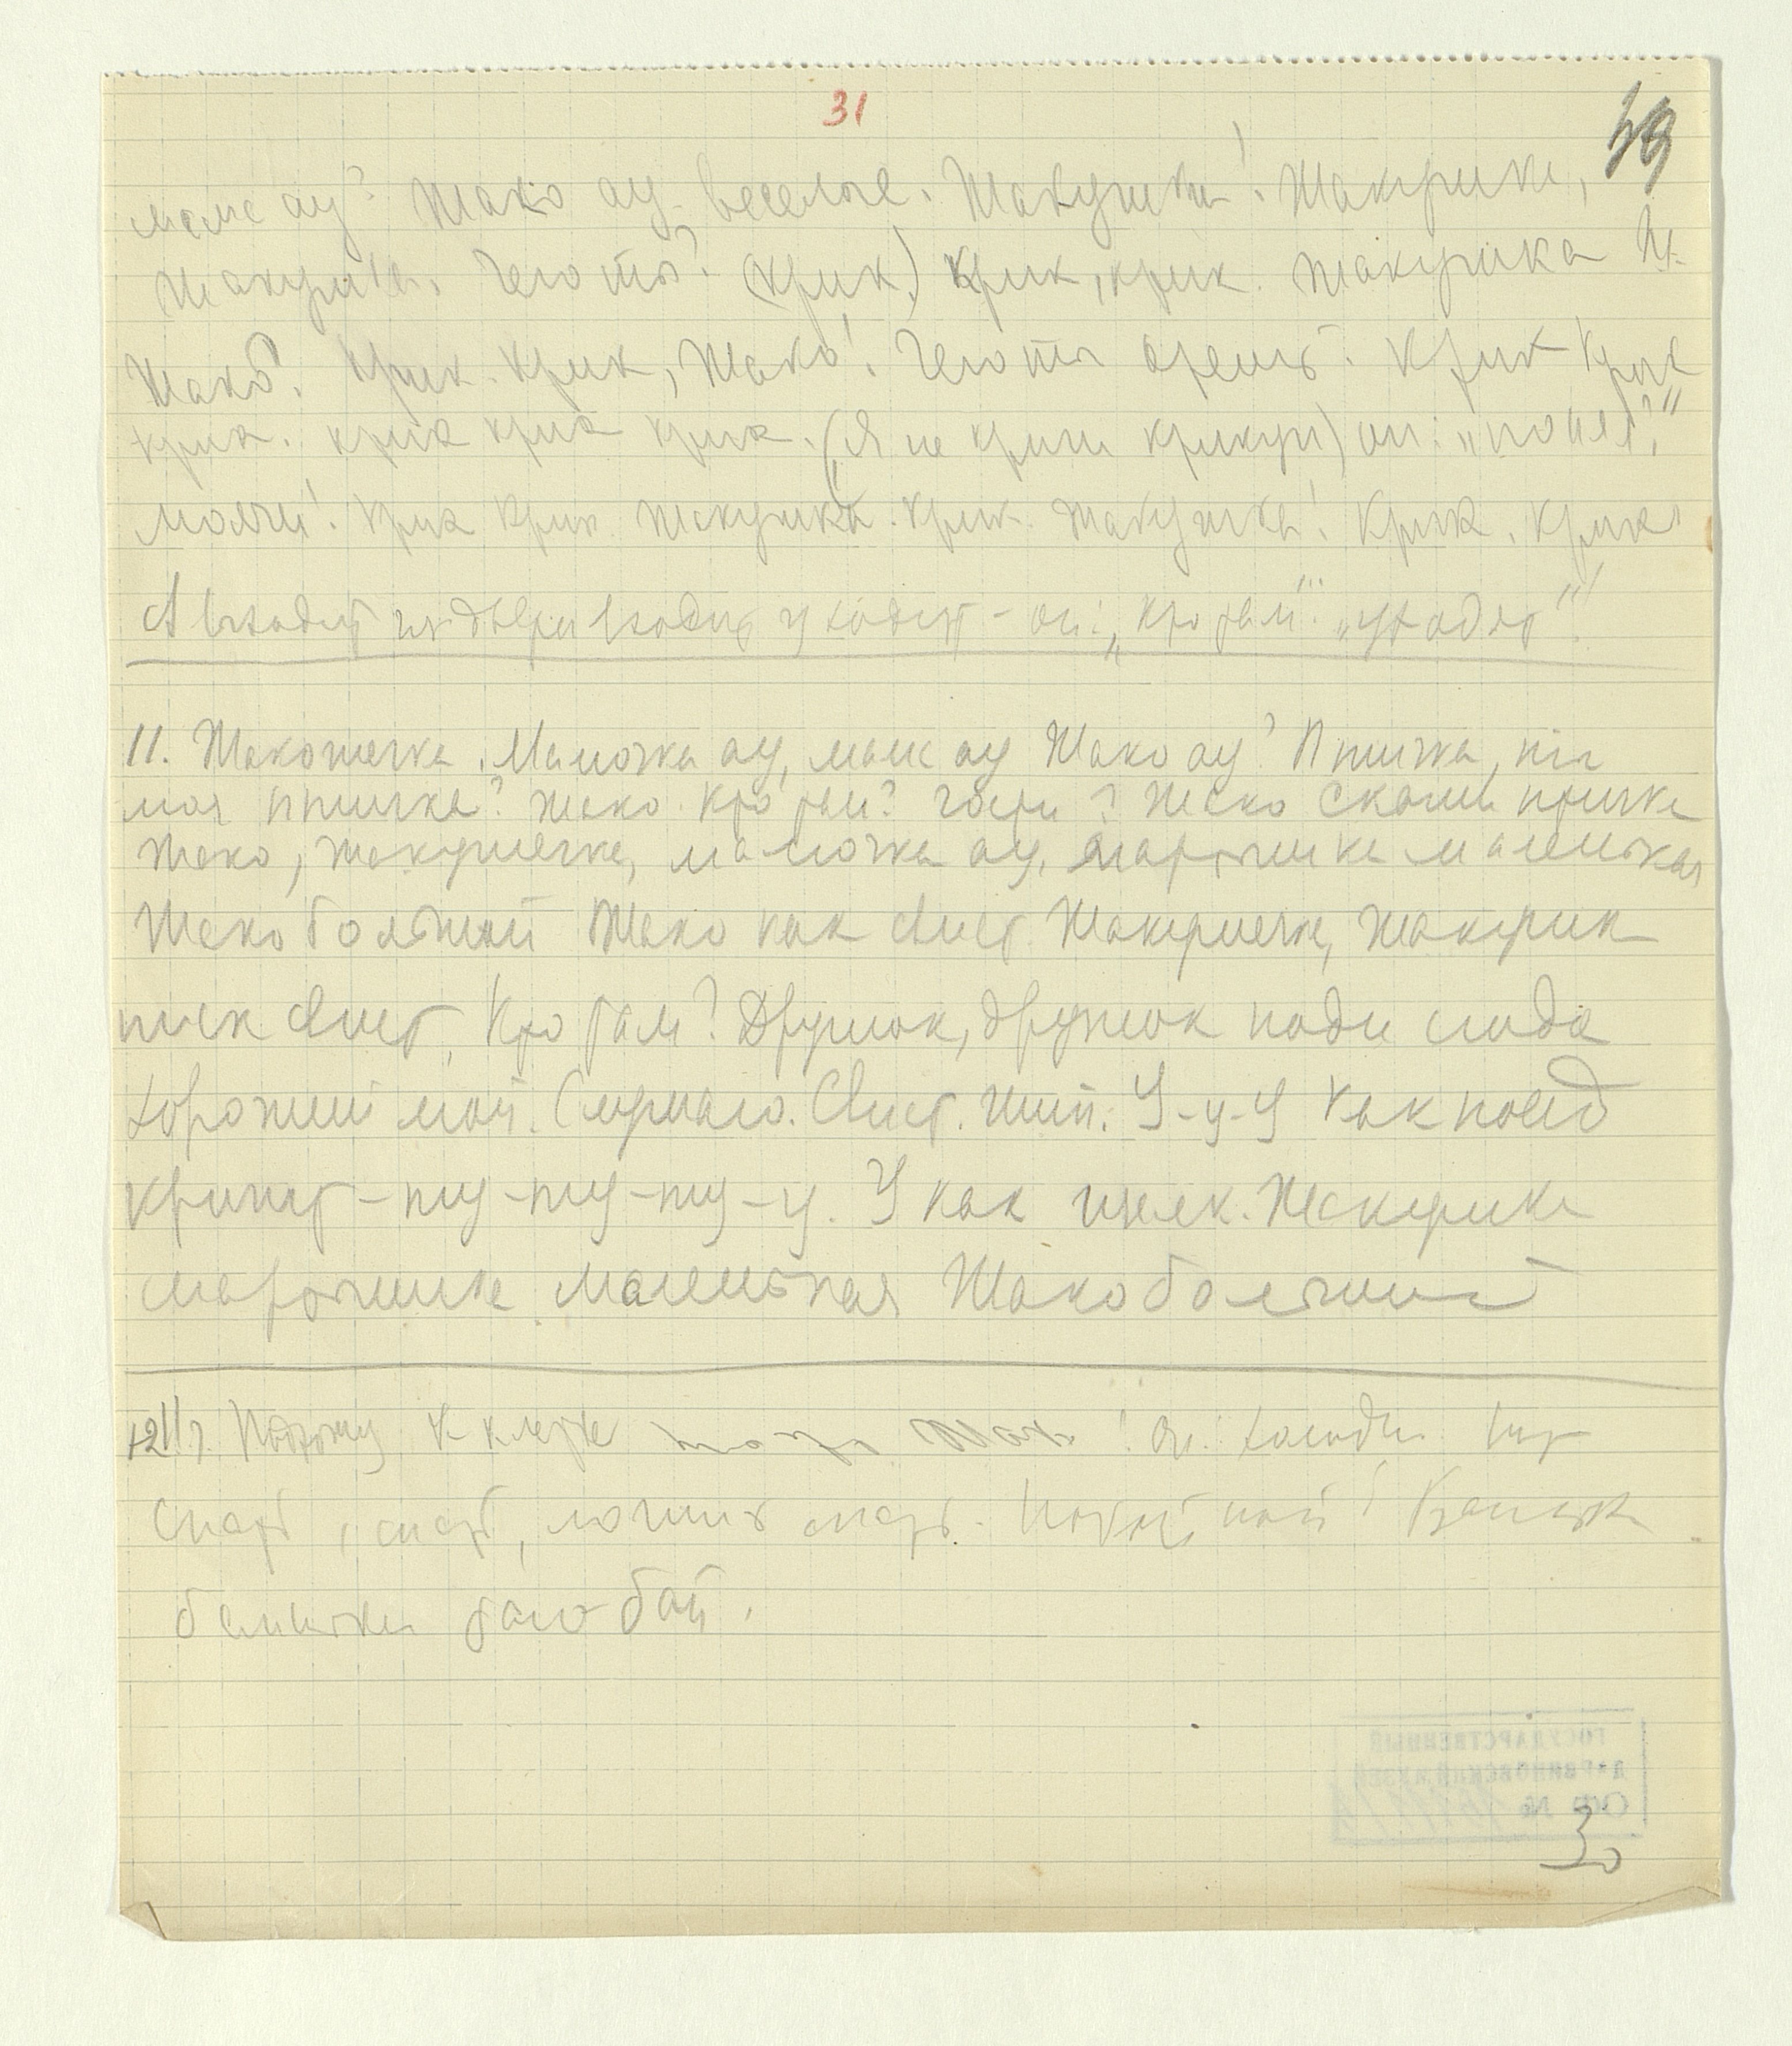 31
49
маме ау? Жако ау. веселые. Жакушка! Жакушка,
Жакушка. Чего ты? (Крик) Крик, крик. Жакушка
Жако. Крик. Крик, Жако! Чего ты орешь. Крик Крик
крик. крик крик крик. (Я не кричи крикун) он: „понял?"
молчи! Крик Крик Жакушка. Крик. Жакушка! Крик. Крик
А выходит из двери входит уходит - он: „Кто там": „уходят"!
11. Жакошечка. Мамочка ау, маме ау Жако ау? Птичка, где
моя птичка? Жако. Кто там? Гости? Жако Скажи птичке
Жако, Жакушечка, мамочка ау, мартышка маленькая
Жако большой Жако как свист. Жакушечка, Жакушк
писк свист, Кто там? Дружок, дружок поди сюда
хороший мой. Смирнаго. Свист. Шип. У-у-у Как поезд
кричит - ту-ту-ту-у. У как щелк. Жакушка
мартышка маленькая Жако большой
12 Подхожу к клетке Он:
Спать, спать, ложись спать.
баиньки баю бай.
ГОСУДАРСТВЕННЫЙ
ДАРВИНОВСКИЙ МУЗЕЙ
ОФ №
30